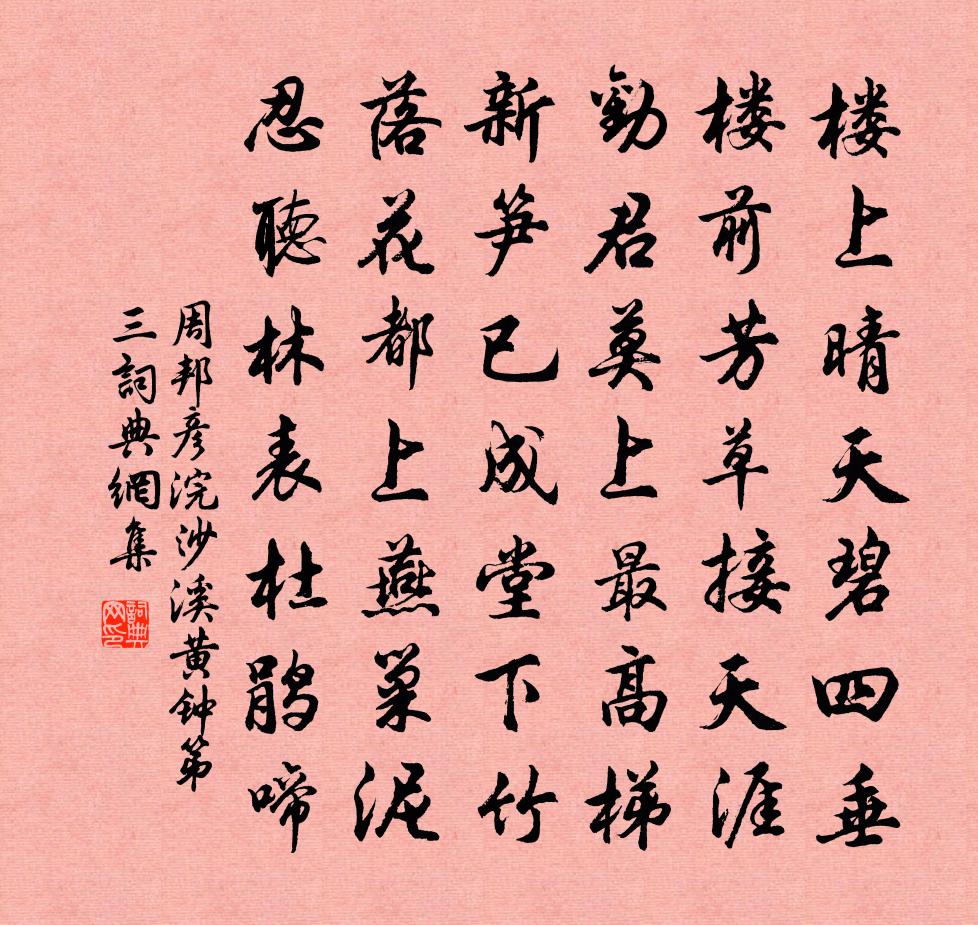 楼上晴天碧四垂
楼前芳草接天涯
勸君莫上最高梯
新笋已成堂下竹
落花都上燕巢泥
忍聽林表杜鹃啼
周邦彦浣沙溪黄钟第
三詞典網集
詞典网印